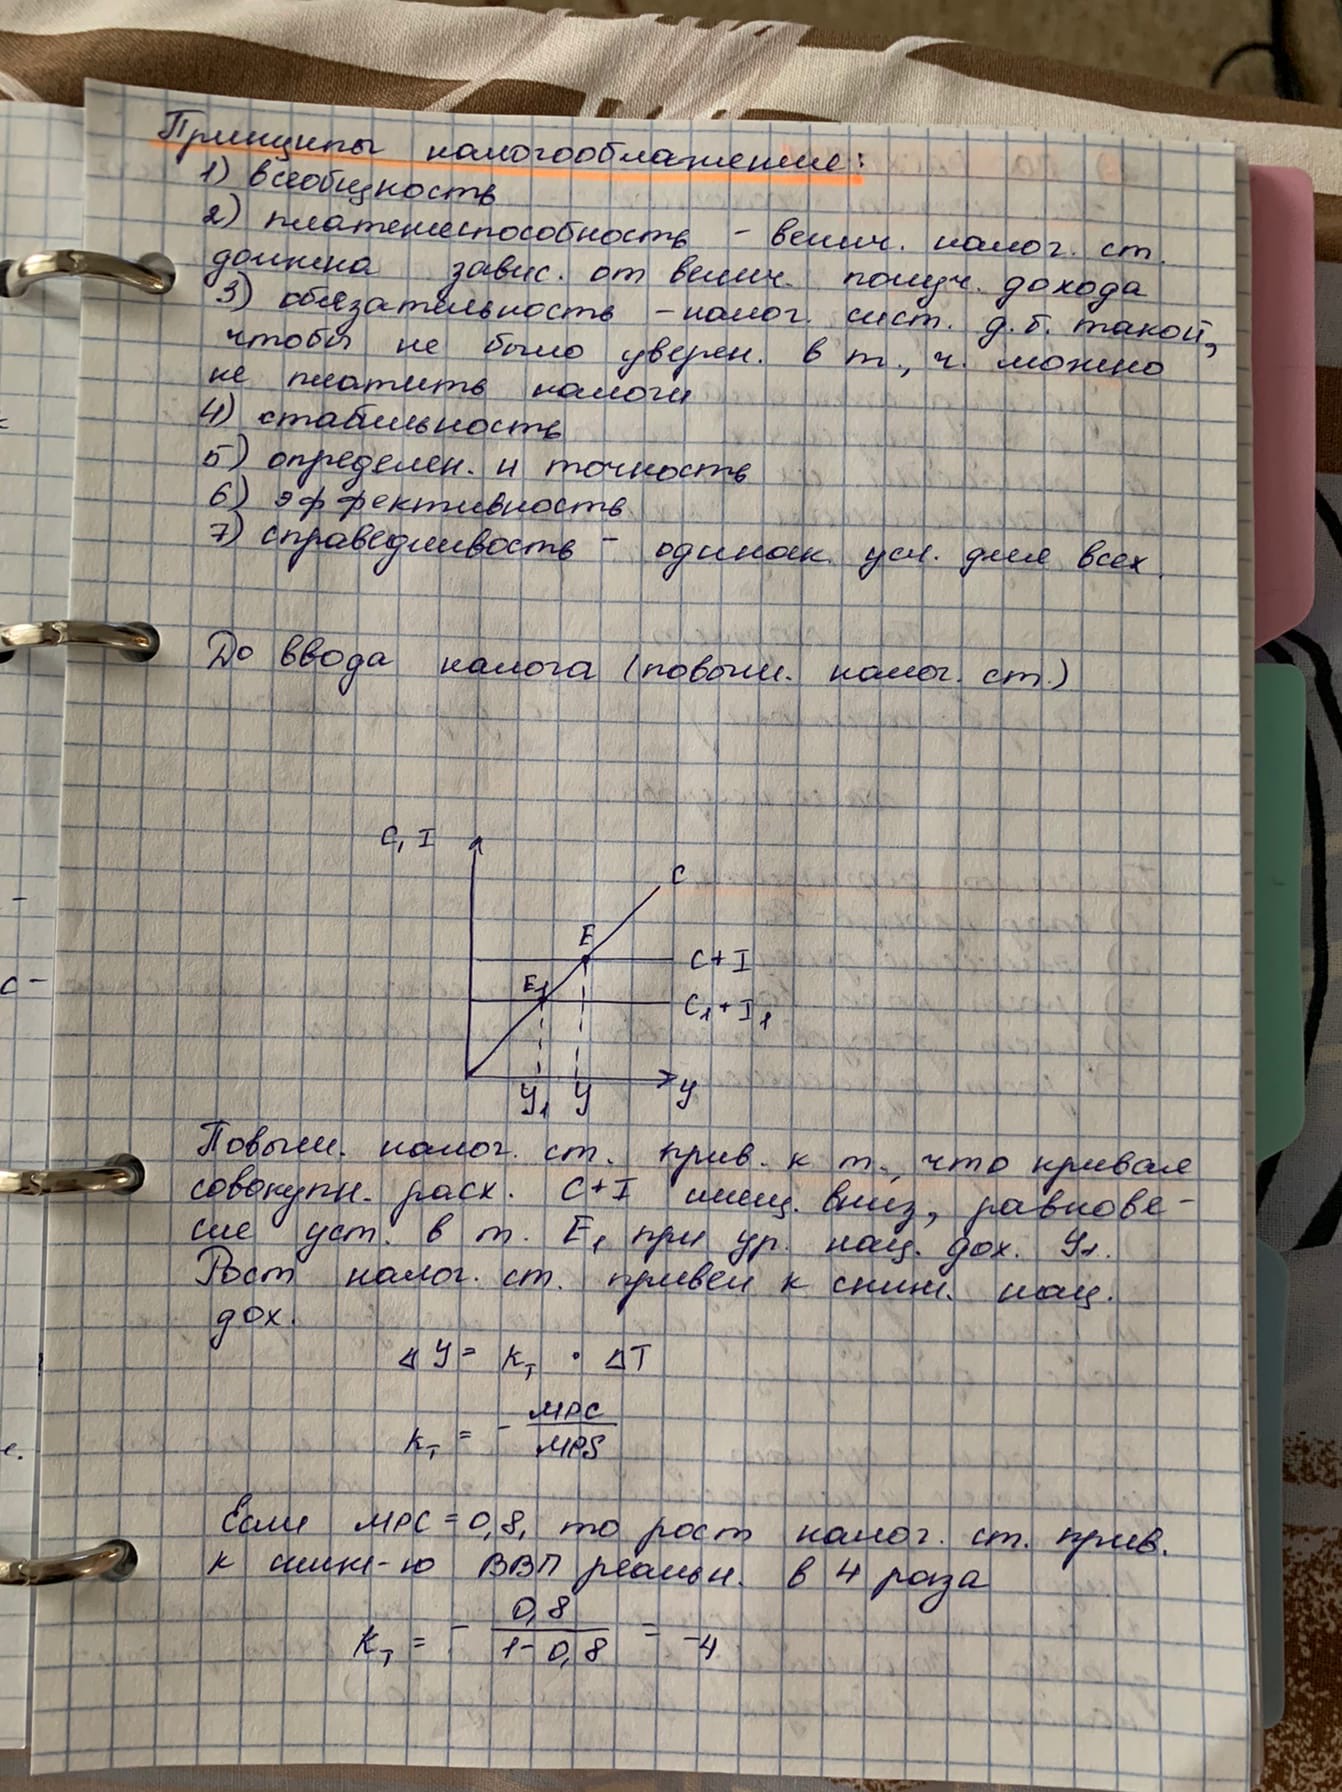 Принципы налогообложения:
1) всеобщность
2) платежеспособность - велич. налог. ст.
должна завис. от велич. получ. дохода
3) обязательность - налог. сист. д.б. такой,
чтобы не было уверен. в т., ч. можно
не платить налоги
4) стабильность
5) определен. и точность
6) эффективность
7) справедливость - одинак. усл. для всех.
До ввода налога (повыш. налог. ст.)
C, I
C
E
C+I
E₁
C₁+I₁
y₁ y y
Повыш. налог. ст. прив. к т., что кривая
совокупн. расх. C+I смещ. вниз, равнове-
сие уст. в т. E₁ при ур. нац. дох. y₁.
Рост налог. ст. привел к сниж. нац.
дох.
ΔY = Kт · ΔT
Kт = - MPC / MPS
Если MPC = 0,8, то рост налог. ст. прив.
к сниж-ю ВВП реальн. в 4 раза
Kт = - 0,8 / 1-0,8 = -4
с-
е.